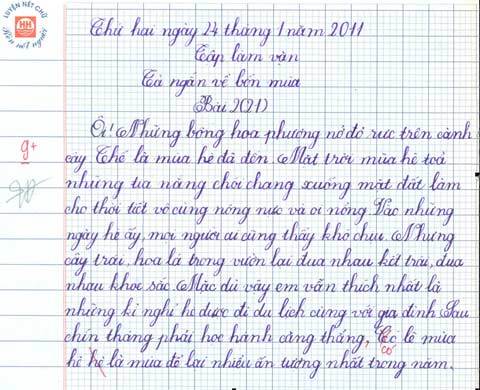 LUYỆN NÉT CHỮ
Rèn nết người
HH
Thứ hai ngày 24 tháng 1 năm 2011
Tập làm văn
Tả ngắn về bốn mùa
Bài 2(21)
Ôi! Những bông hoa phượng nở đỏ rực trên cành
cây. Thế là mùa hè đã đến. Mặt trời mùa hè toả
9+
những tia nắng chói chang xuống mặt đất làm
cho thời tiết vô cùng nóng nực và oi nồng. Vào những
ngày hè ấy, mọi người ai cũng thấy khó chịu. Nhưng
cây trái, hoa lá trong vườn lại đua nhau kết trái, đua
nhau khoe sắc. Mặc dù vậy em vẫn thích nhất là
những kì nghỉ hè được đi du lịch cùng với gia đình. Sau
chín tháng phải học hành căng thẳng, Có lẽ mùa
có
hè hè là mùa để lại nhiều ấn tượng nhất trong năm.